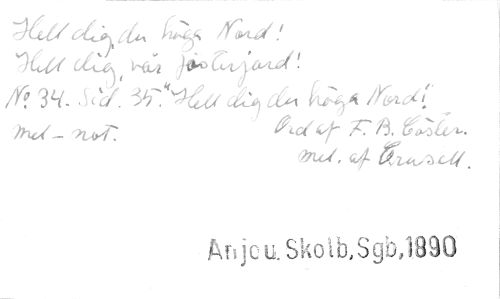 Hell dig, du höga Nord!
Hell dig, vår fosterjord!
No 34. Sid. 35. "Hell dig du höga Nord!"
mel-not. Ord af F. B. Cöster.
mel. af Crusell.
Anjou. Skolb, Sgb, 1890